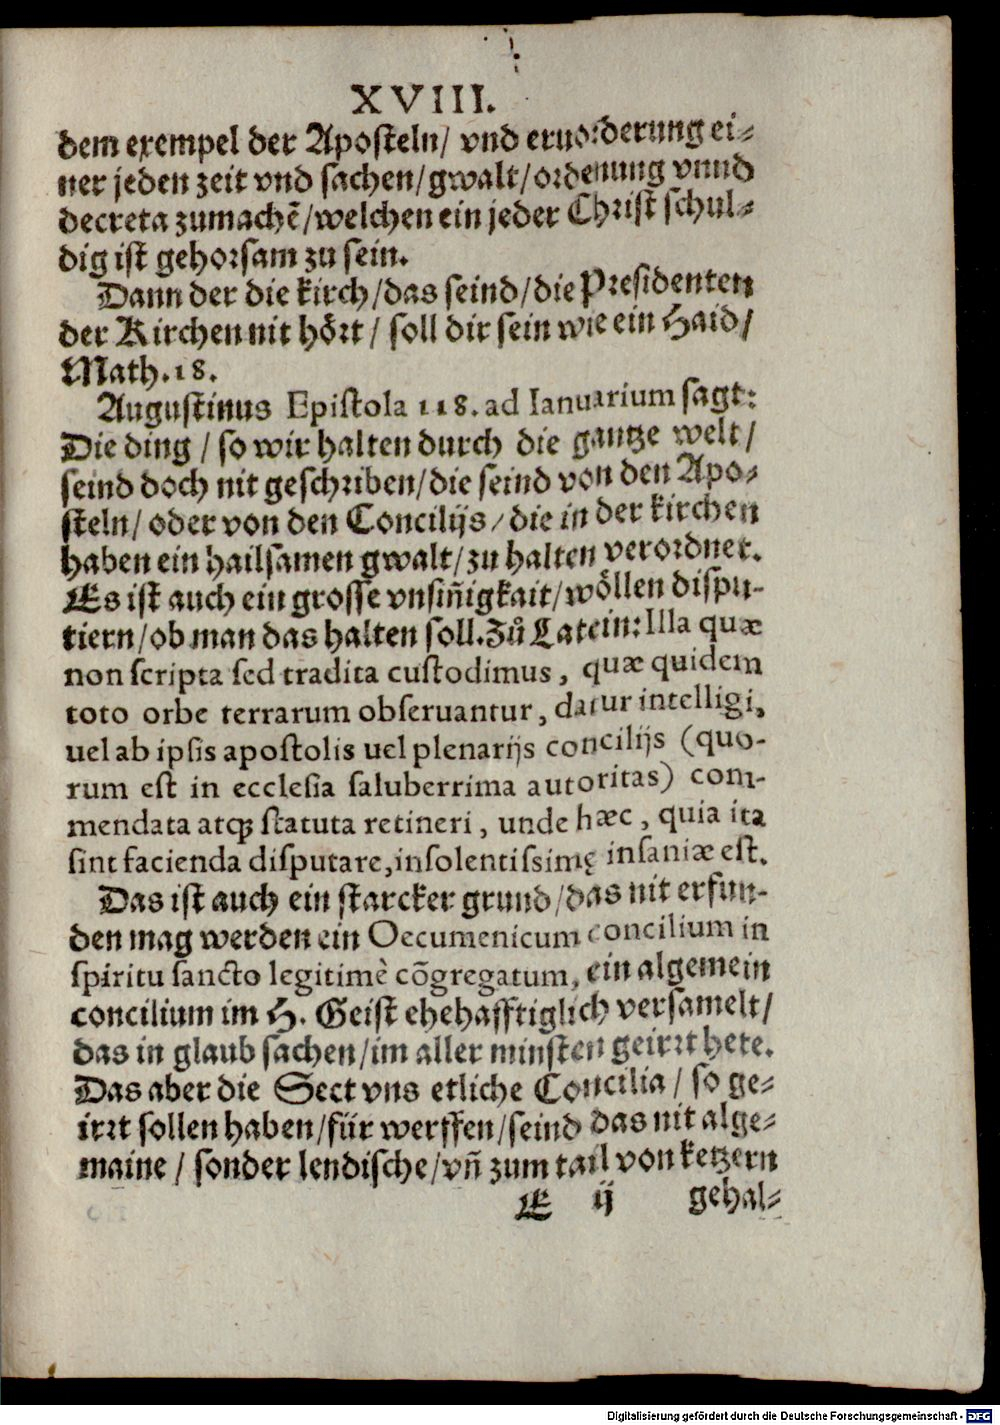 XVIII.
dem exempel der Aposteln/ vnd eruorderung ei⸗
ner jeden zeit vnd sachen/gwalt/ordenung vnnd
decreta zumachē/welchen ein jeder Christ schul⸗
dig ist gehorsam zu sein.
Dann der die kirch/das seind/die Presidenten
der Kirchen nit hört/ soll dir sein wie ein Haid/
Math.18.
Augustinus Epistola 118. ad Ianuarium sagt:
Die ding / so wir halten durch die gantze welt/
seind doch nit geschriben/die seind von den Apo⸗
steln/ oder von den Concilijs/die in der kirchen
haben ein hailsamen gwalt/zu halten verordnet.
Es ist auch ein grosse vnsiñigkait/wöllen dispu⸗
tiern/ob man das halten soll.Zů Latein:Illa quæ
non scripta sed tradita custodimus, quæ quidem
toto orbe terrarum obseruantur, datur intelligi,
uel ab ipsis apostolis uel plenarijs concilijs (quo-
rum est in ecclesia saluberrima autoritas) com-
mendata atqꝫ statuta retineri, unde hæc, quia ita
sint facienda disputare,insolentissimę insaniæ est.
Das ist auch ein starcker grund/das nit erfun⸗
den mag werden ein Oecumenicum concilium in
spiritu sancto legitimè cõgregatum, ein algemein
concilium im H. Geist ehehafftiglich versamelt/
das in glaub sachen/im aller minsten geirrt hete.
Das aber die Sect vns etliche Concilia/ so ge⸗
irrt sollen haben/für werffen/seind das nit alge⸗
maine / sonder lendische/vñ zum tail von ketzern
E ij gehal⸗
Digitalisierung gefördert durch die Deutsche Forschungsgemeinschaft - DFG